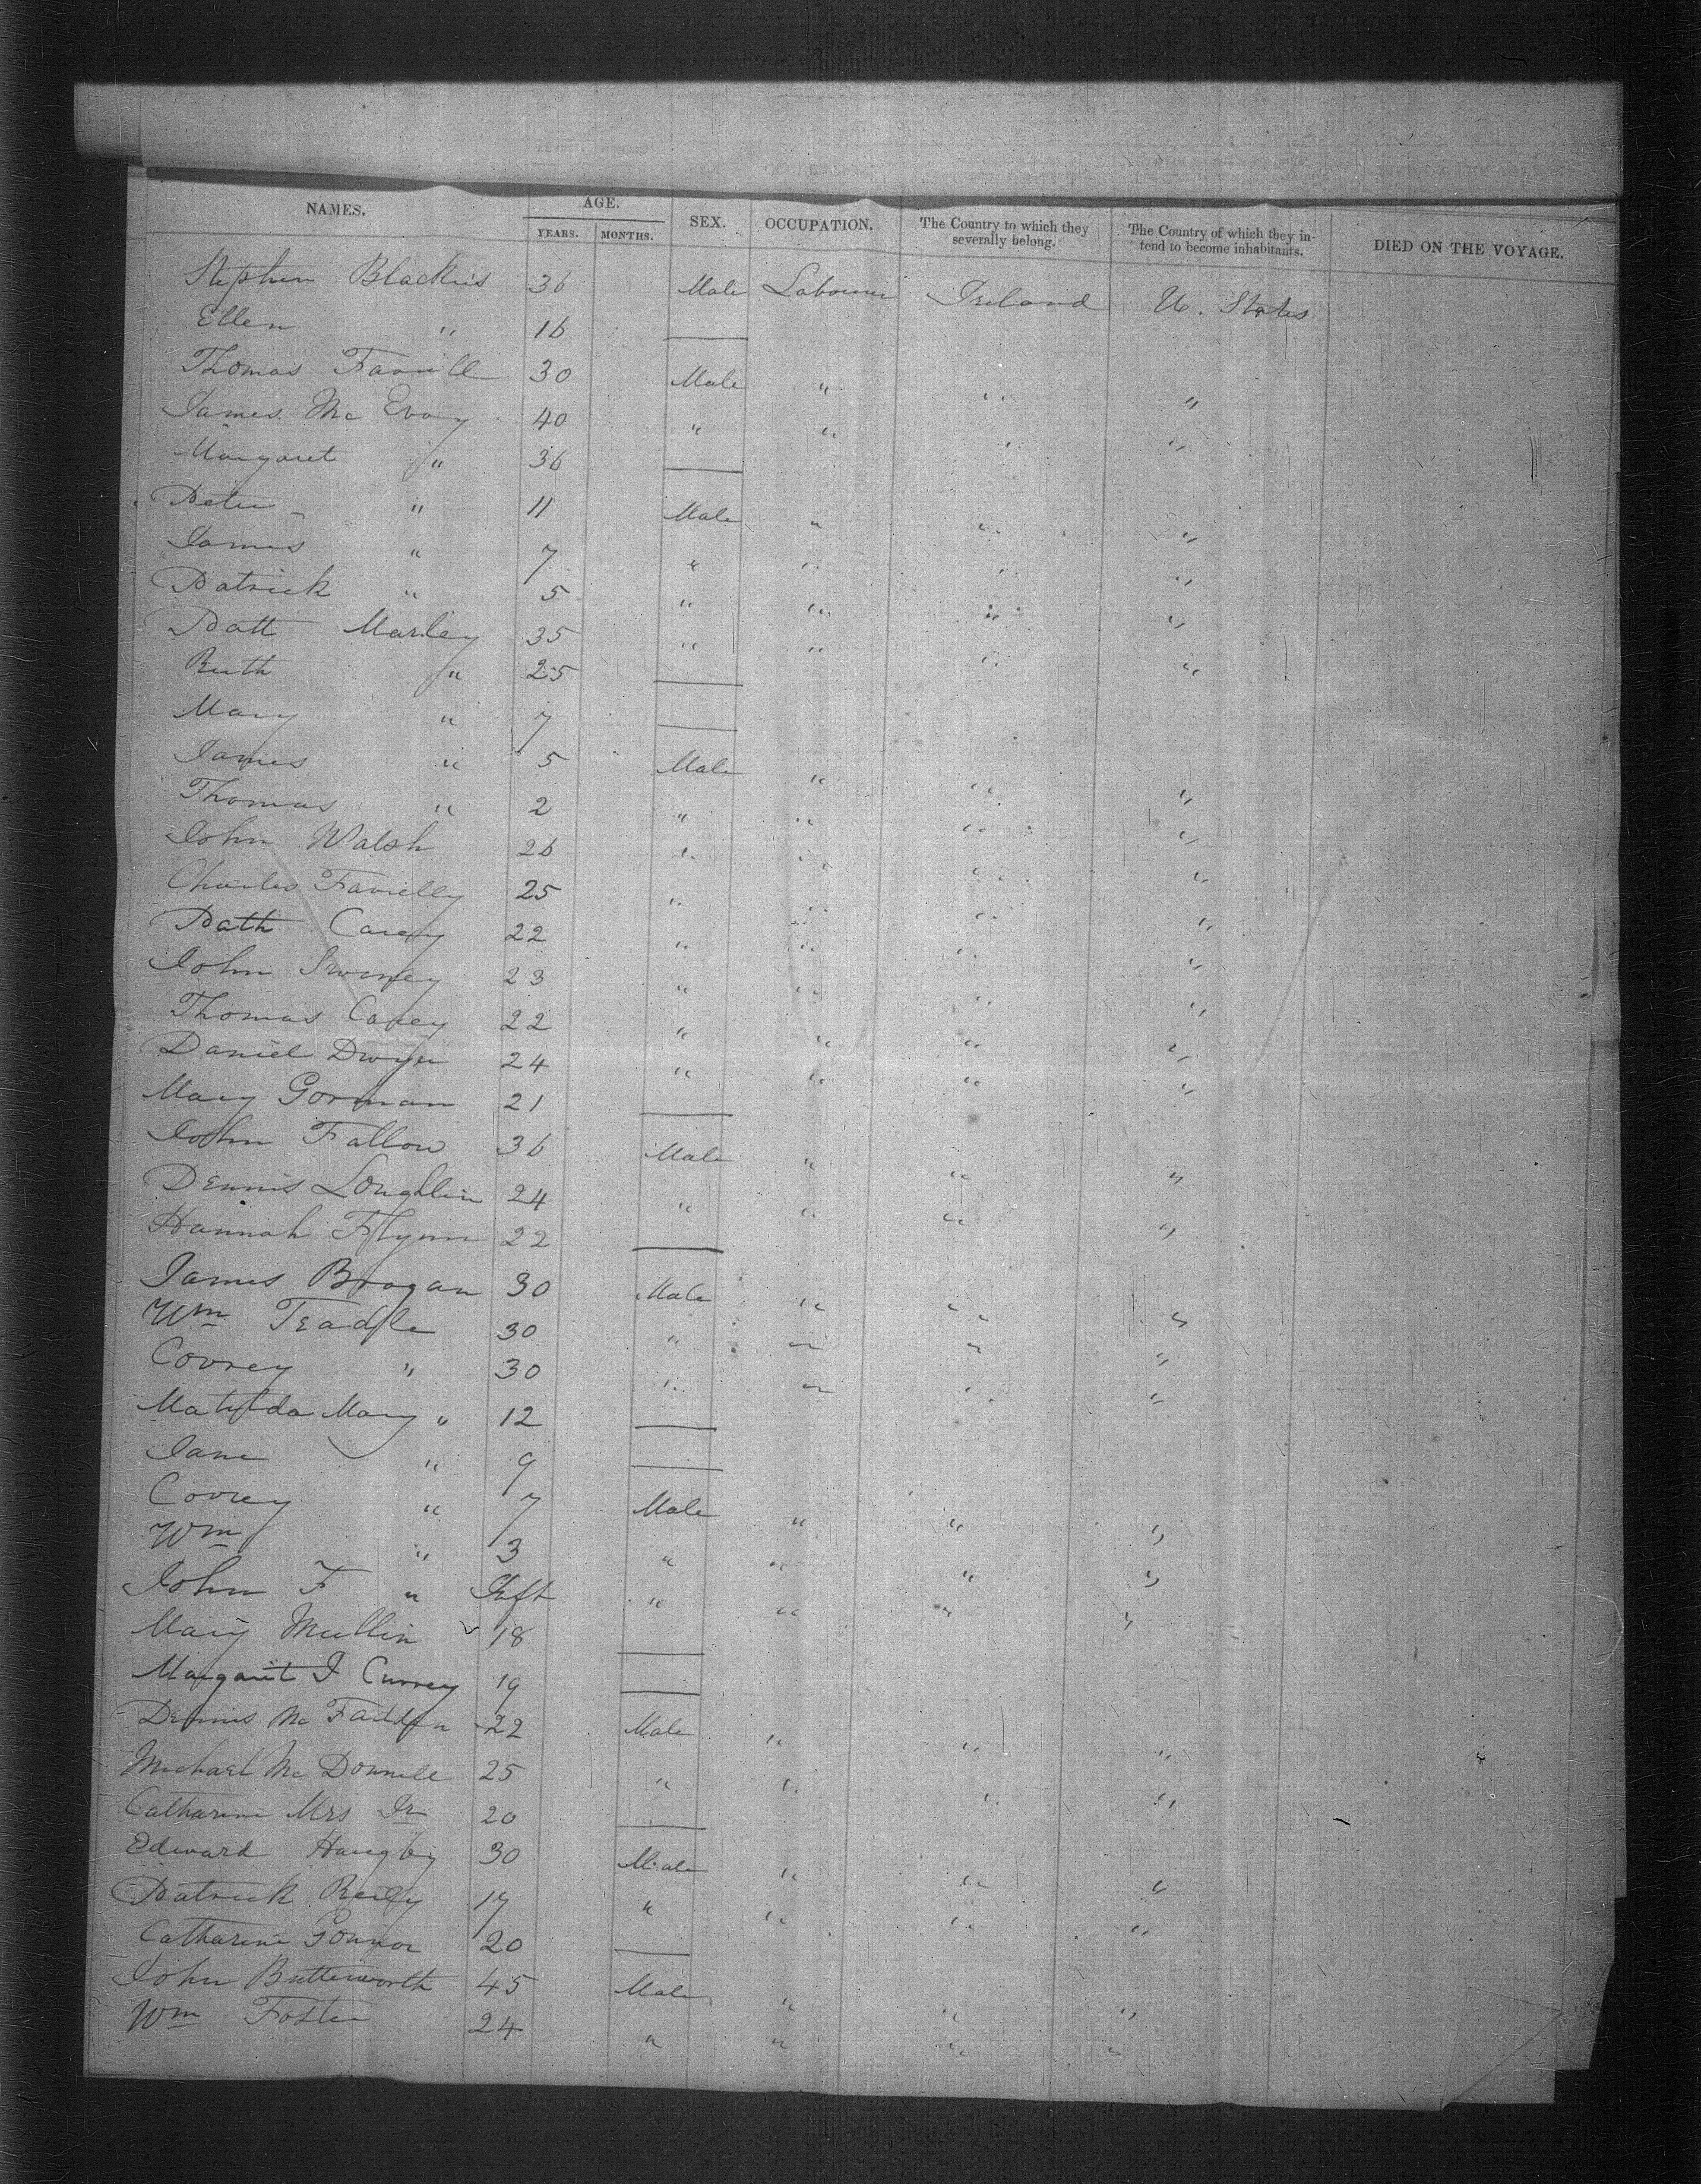 NAMES. AGE. SEX. OCCUPATION. The Country to which they severally belong. The Country of which they in-tend to become inhabitants. DIED ON THE VOYAGE.
YEARS. MONTHS.
Stephen 36 Male Labourer Ireland U. States
Ellen " 16 —
Thomas 30 Male " " "
James Mc Evoy 40 " " " "
Margaret " 36 —
Peter " 11 Male " " "
James " 7 " " " "
Patrick " 5 " " " "
Patt Marley 35 " " " "
Ruth " 25 —
Mary " 7 —
James " 5 Male " " "
Thomas " 2 " " " "
John Walsh 26 " " " "
Charles 25 " " " "
Path Carey 22 " " " "
John Sweney 23 " " " "
Thomas Carey 22 " " " "
Daniel Dwyer 24 " " " "
Mary Gorman 21 —
John Fallow 36 Male " " "
Dennis Loughlin 24 " " " "
Hannah Flynn 22 —
James Brogan 30 Male " " "
Wm Teadle 30 " " " "
Covrey " 30 " " " "
Matilda Mary " 12 —
Jane " 9 —
Covrey " 7 Male " " "
Wm " 3 " " " "
John F " Inft " " " "
Mary Mullin 18 —
Margaret J Currey 19 —
Dennis Mc Fadden 22 Male " " "
Michael Mc Donnell 25 " " " "
Catharine Mrs 20 —
Edward 30 Male " " "
Patrick Reily 17 " " " "
Catharine Connor 20 —
John Butterworth 45 Male " " "
Wm Foster 24 " " " "